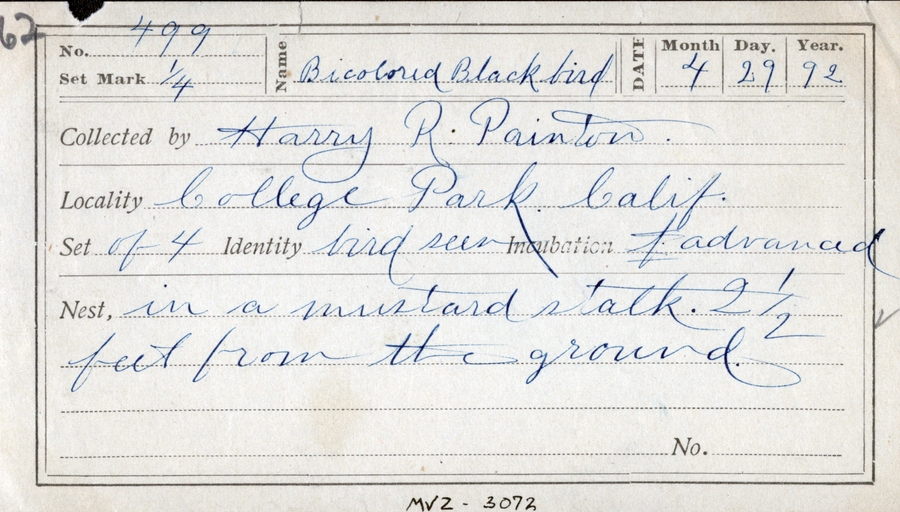 62
No. 499 Name Bicolored Blackbird DATE Month 4 Day. 29 Year. 92
Set Mark 1/4
Collected by Harry R. Painton.
Locality College Park. Calif.
Set of 4 Identity bird seen Incubation advanced
Nest, in a mustard stalk. 2 1/2
feet from the ground.
No.
MVZ - 3072